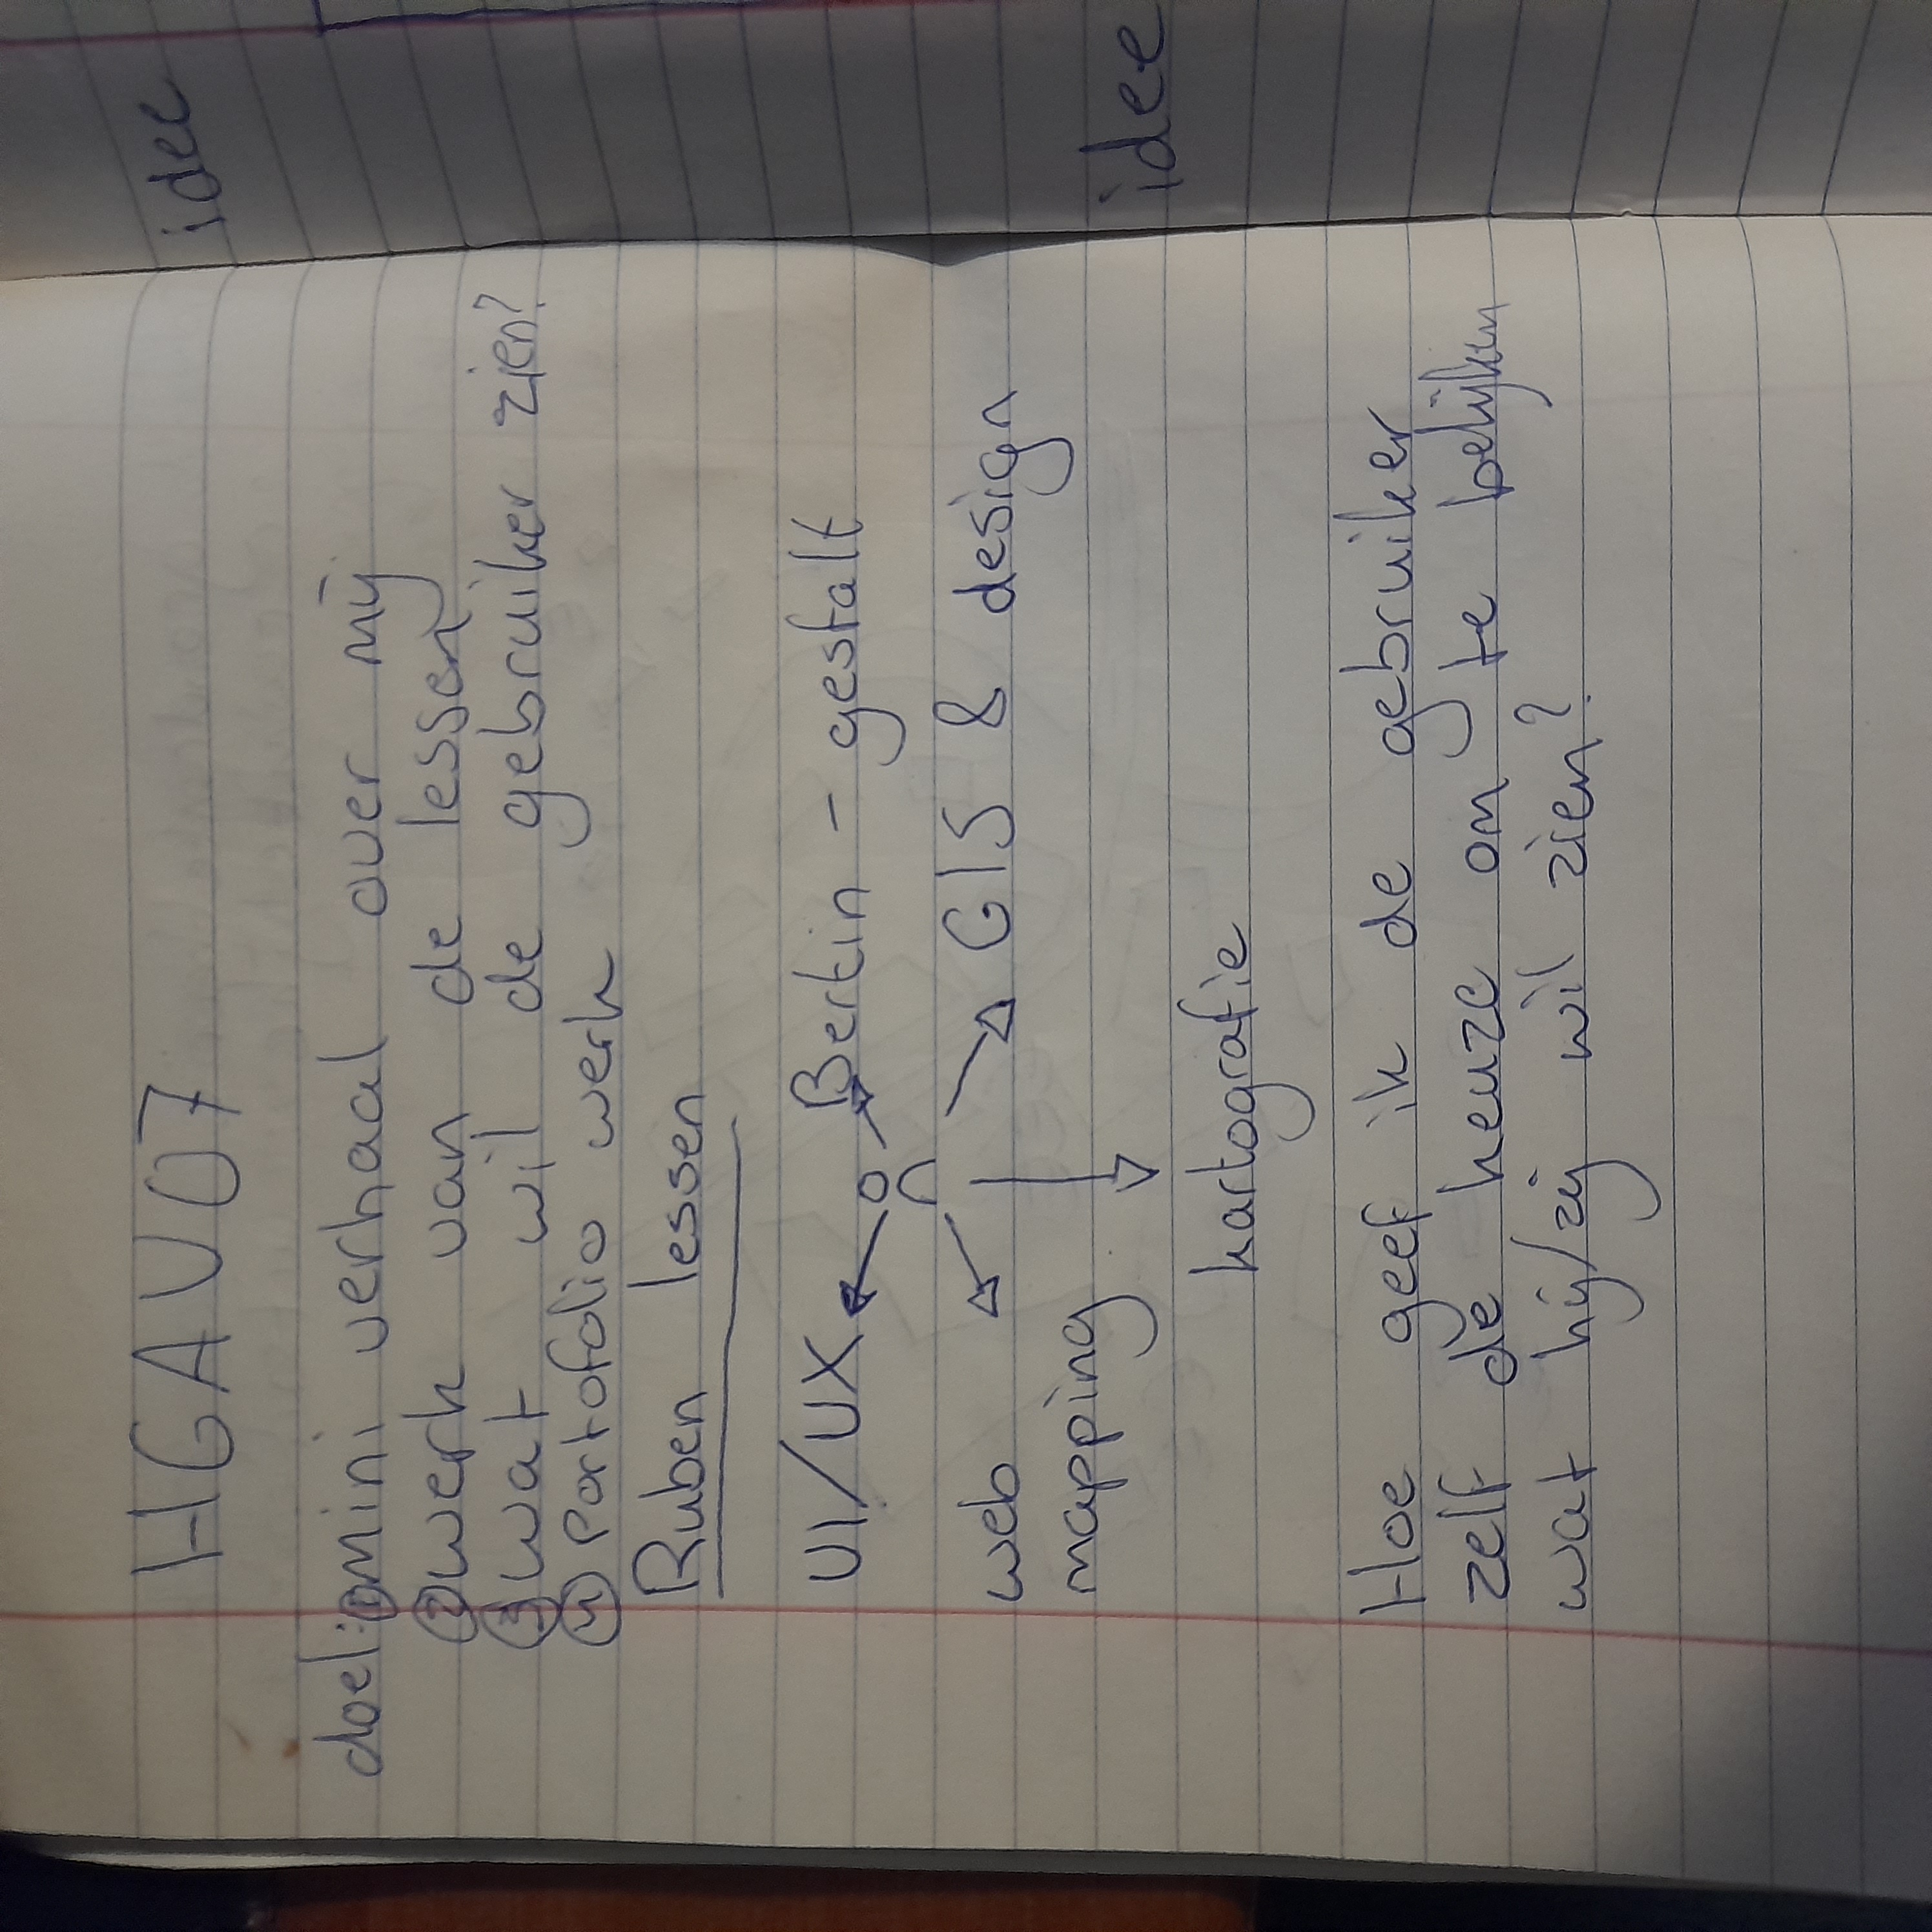 HGAV07
doel: ① mini verhaal over mij
② werk van de lessen
③ wat wil de gebruiker zien?
④ Portofolio werk
Ruben lessen
UI/UX Bertin - gestalt
web GIS & design
mapping
kartografie
Hoe geef ik de gebruiker
zelf de keuze om te belijken
wat hij/zij wil zien?
idee
idee